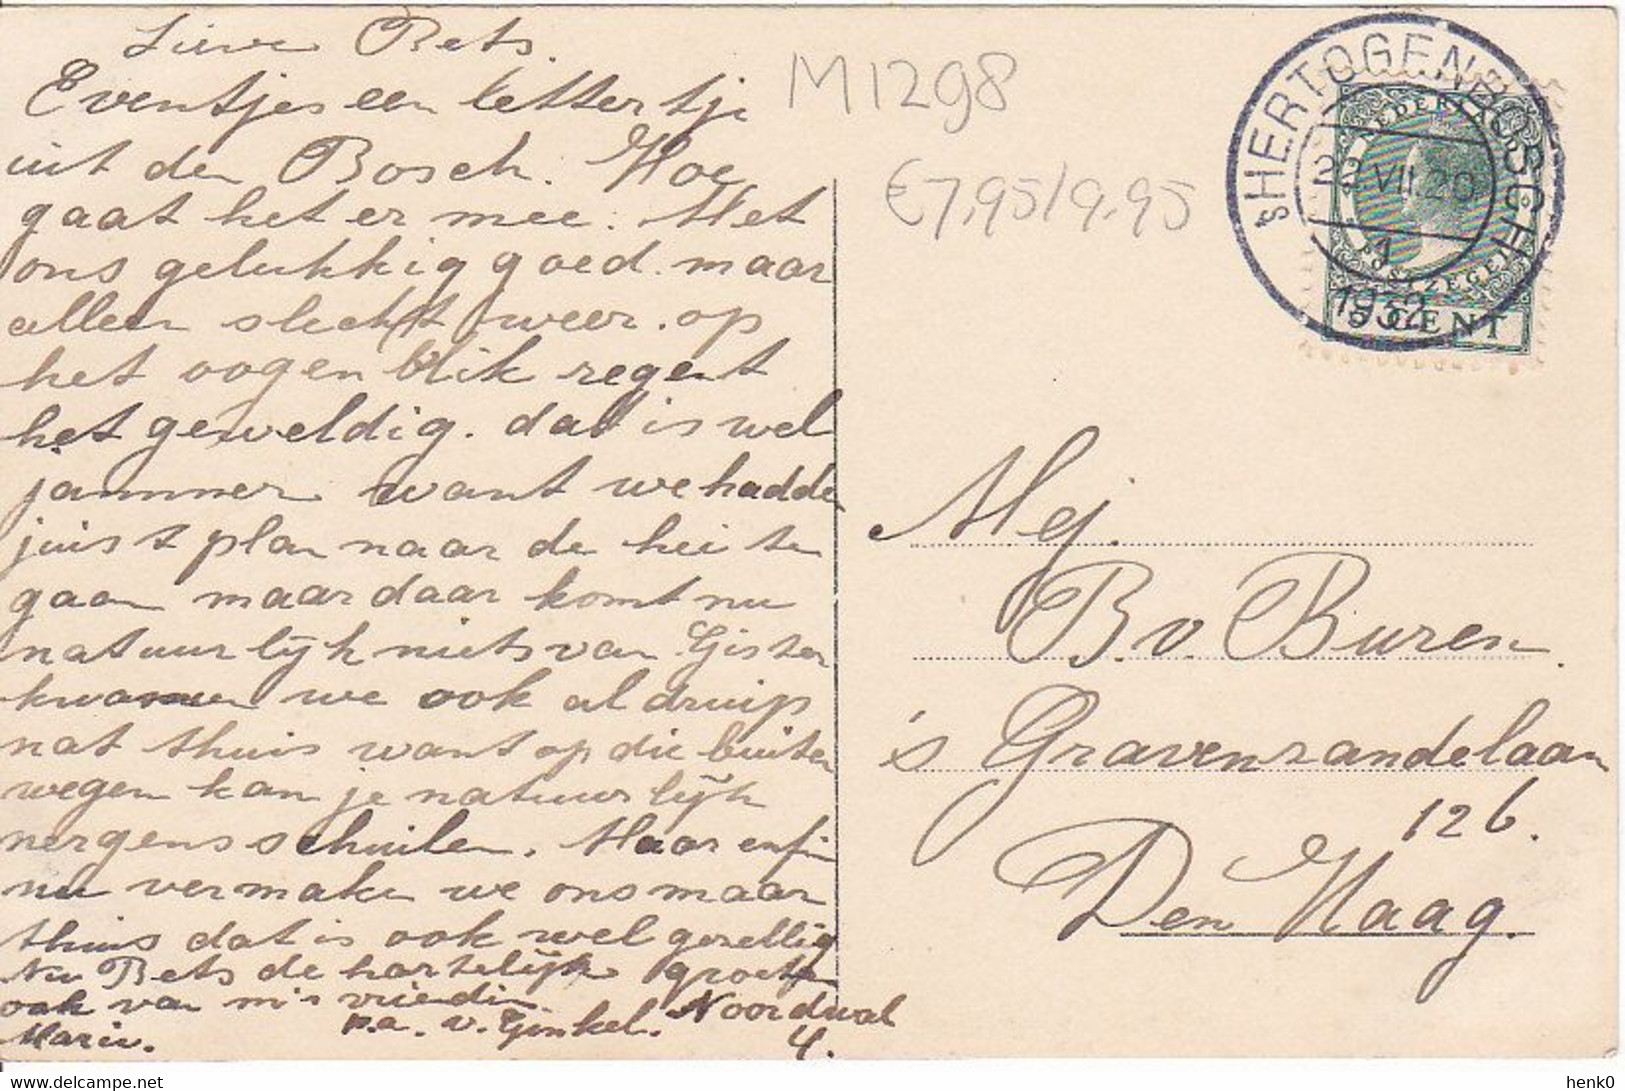 Lieve Bets.
Eventjes een lettertje
uit den Bosch. Hoe
gaat het er mee. Met
ons gelukkig goed. maar
alleen slecht weer. op
het oogenblik regent
het geweldig. dat is wel
jammer want we hadde
juist plan naar de hei te
gaan maar daar komt nu
natuurlijk niets van Gister
kwamen we ook al druip
nat thuis want op die buiten
wegen kan je natuurlijk
nergens schuilen. Maar enfin
nu vermaken we ons maar
thuis dat is ook wel gezellig
Nu Bets de hartelijke groeten
ook van mi'n vriendin
Marie.
p.a. v. Ginkel. Noordwal
4.
M1298
€7,95/9,95
'sHERTOGENBOSCH
22.VII.20
1
1932
NEDERLAND
POSTZEGEL
CENT
Mej.
B. v. Buren.
's Gravenzandelaan
126.
Den Haag.
delcampe.net
henk0